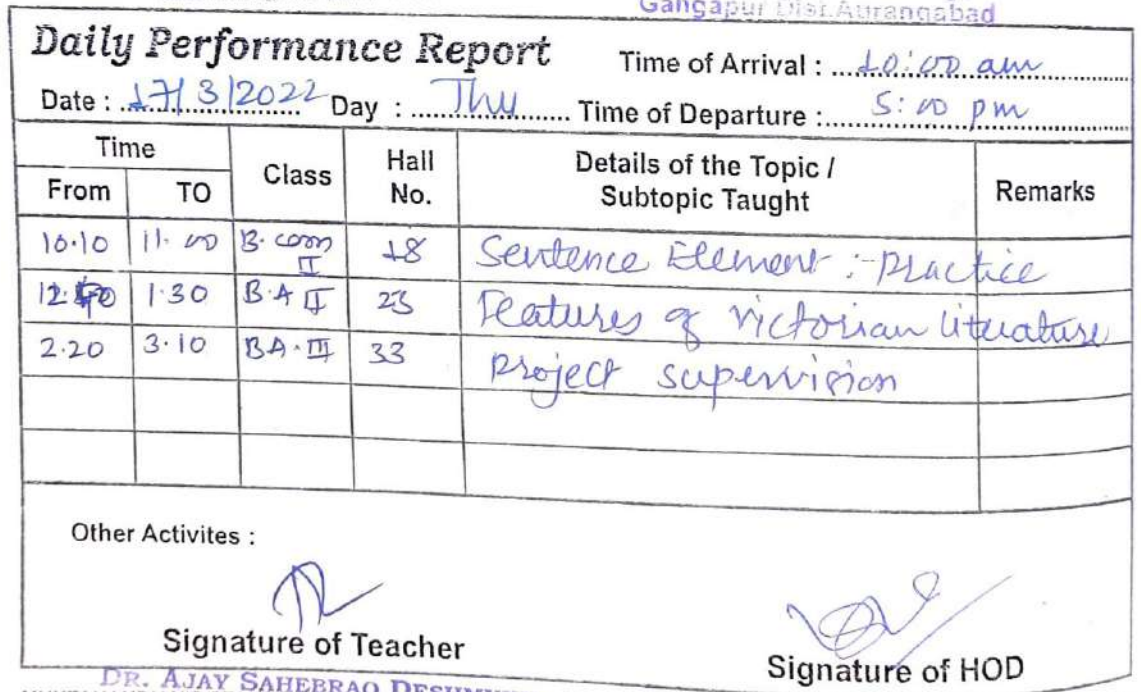 Gangapur Dist.Aurangabad
Daily Performance Report
Time of Arrival : 10:00 am
Date : 17/3/2022 Day : Thu Time of Departure : 5:00 pm
Time Class Hall No. Details of the Topic / Subtopic Taught Remarks
From TO
10.10 11.00 B.com II 18 Sentence Element :- Practice
1.30 B.A II 23 Features of Victorian literature
2.20 3.10 BA.III 33 Project supervision
Other Activites :
Signature of Teacher
Signature of HOD
DR. AJAY SAHEBRAO